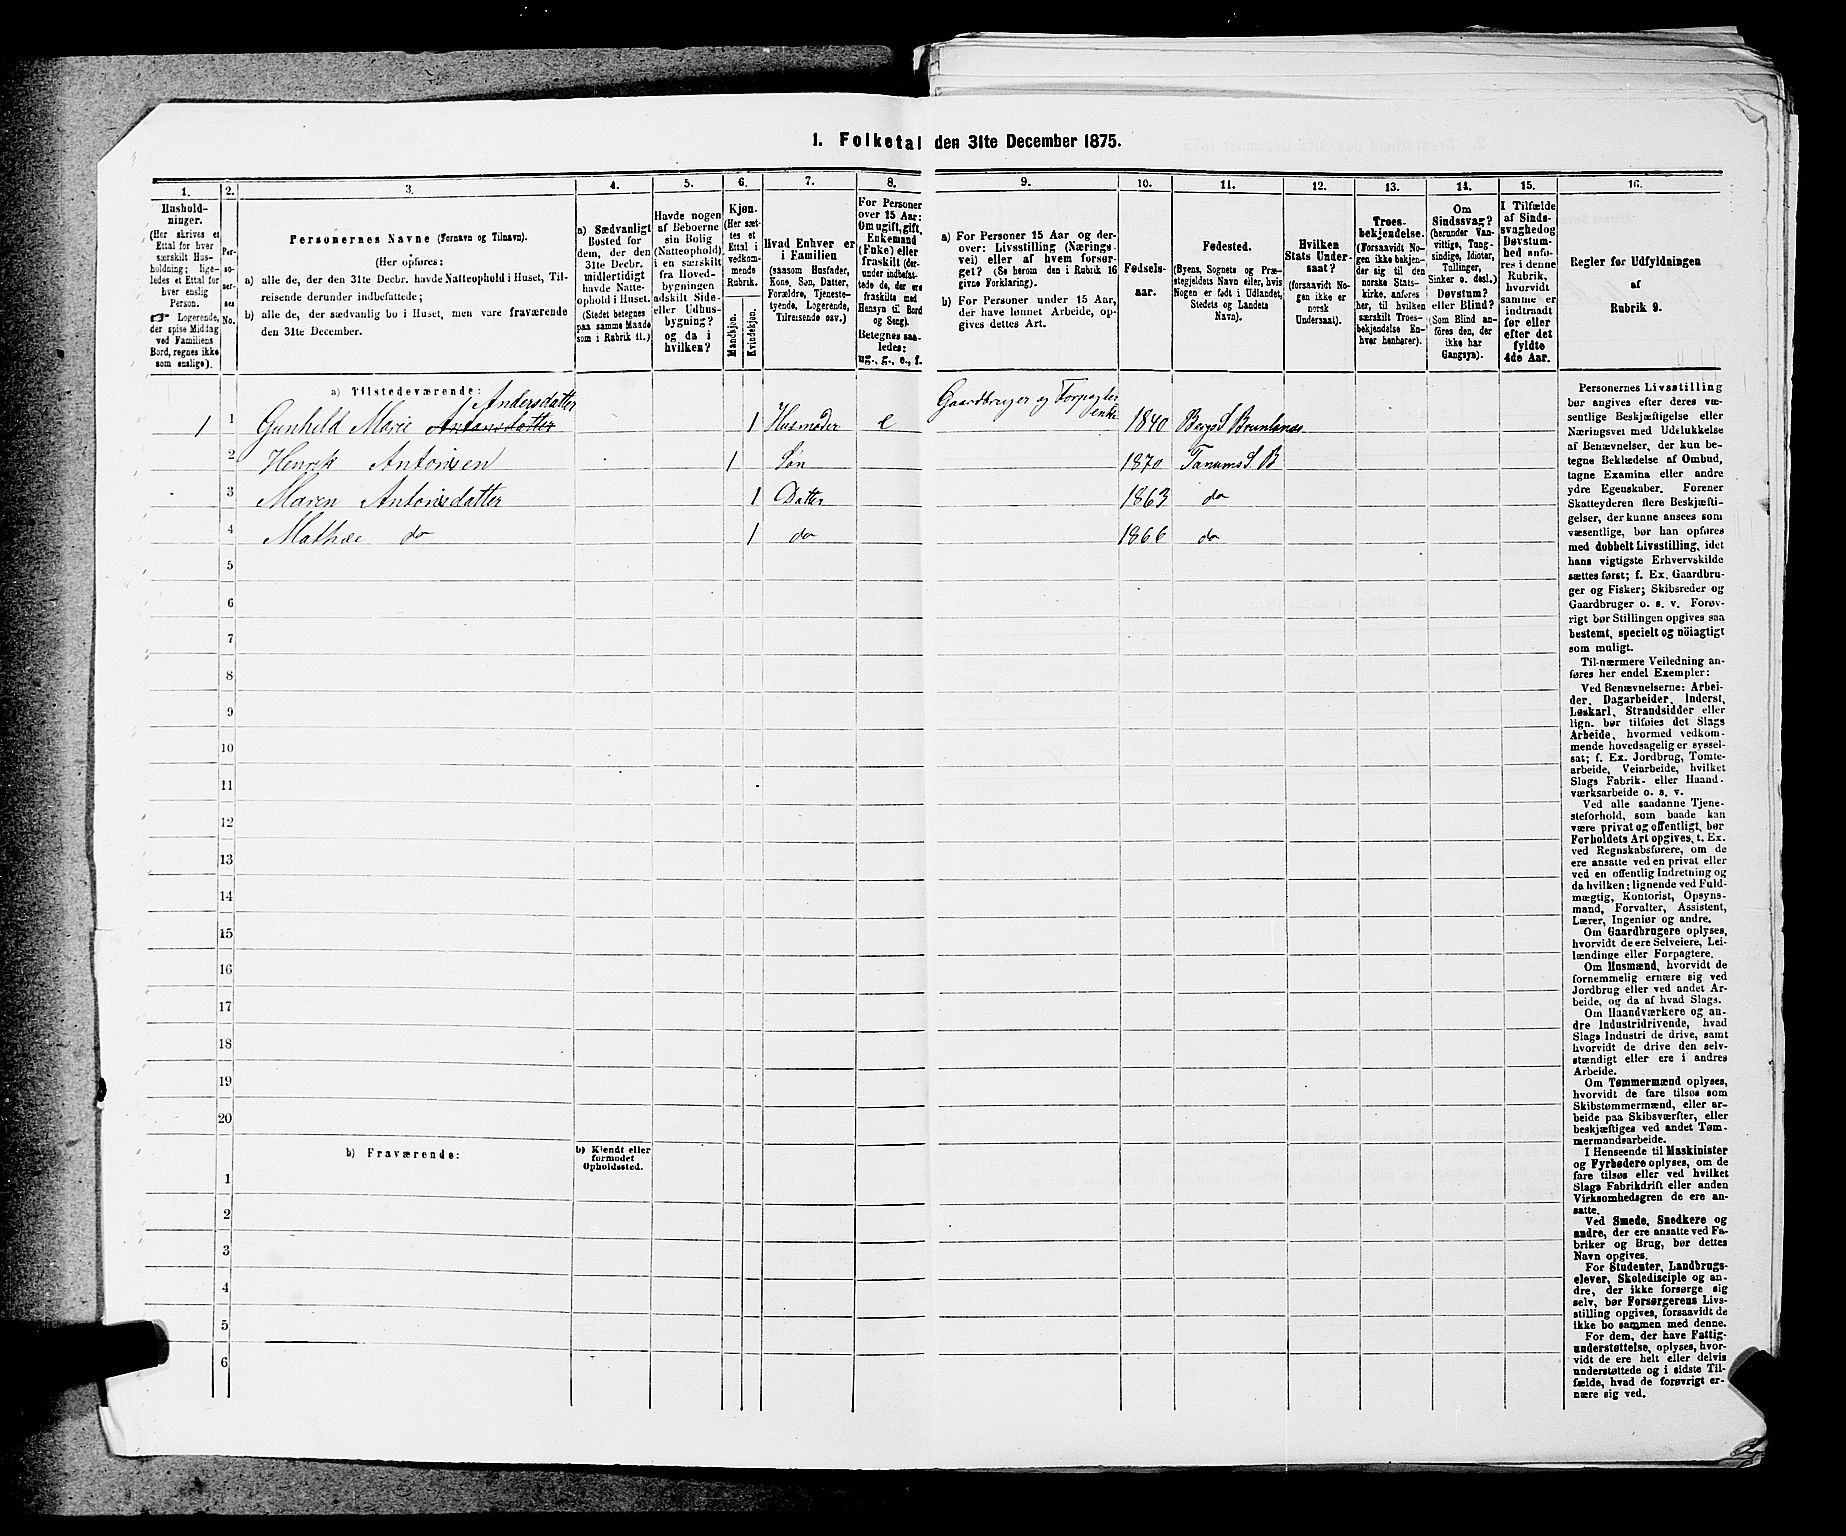 1. Folketal den 31te December 1875.
1.
2.
3.
4.
5.
6.
7.
8.
9.
10.
11.
12.
13.
14.
15.
16.
Hushold-
ninger.
(Her skrives et
Ettal for hver
særskilt Hus-
holdning; lige-
ledes et Ettal for
hver enslig
Person.
☞ Logerende,
der spise Middag
ved Familiens
Bord, regnes ikke
som enslige).
Per-
so-
ner-
nes
No.
Personernes Navne (Fornavn og Tilnavn).
(Her opføres:
a) alle de, der den 31te Decbr. havde Natteophold i Huset, Til-
reisende derunder indbefattede;
b) alle de, der sædvanlig bo i Huset, men vare fraværende
den 31te December.
a) Sædvanligt
Bosted for
dem, der den
31te Decbr.
midlertidigt
havde Natte-
ophold i Huset.
(Stedet betegnes
paa samme Maade
som i Rubrik 11.)
Havde nogen
af Beboerne
sin Bolig
(Natteophold)
i en særskilt
fra Hoved-
bygningen
adskilt Side-
eller Udhus-
bygning?
og da i
hvilken?
Kjøn.
(Her sæt-
tes et
Ettal i
vedkom-
mende
Rubrik.
Mandkjøn.
Kvindekjøn.
Hvad Enhver er
i Familien
(saasom Husfader,
Kone, Søn, Datter,
Forældre, Tjeneste-
tyende, Logerende,
Tilreisende osv.)
For Personer
over 15 Aar:
Om ugift, gift,
Enkemand
(Enke) eller
fraskilt (der-
under indbefat-
tede de, der ere
fraskilte med
Hensyn til Bord
og Seng).
Betegnes saa-
ledes:
ug., g., e., f.
a) For Personer 15 Aar og der-
over: Livsstilling (Nærings-
vei) eller af hvem forsør-
get? (Se herom den i Rubrik 16
givne Forklaring).
b) For Personer under 15 Aar,
der have lønnet Arbeide, op-
gives dettes Art.
Fødsels-
aar.
Fødested.
(Byens, Sognets og Præ-
stegjeldets Navn eller, hvis
Nogen er født i Udlandet,
Stedets og Landets
Navn).
Hvilken
Stats Under-
saat?
(forsaavidt No-
gen ikke er
norsk
Undersaat).
Troes-
bekjendelse.
(Forsaavidt No-
gen ikke bekjen-
der sig til den
norske Stats-
kirke, anføres
her, til hvilken
særskilt Troes-
bekjendelse En-
hver henhører).
Om
Sindssvag?
(herunder Van-
vittige, Tung-
sindige, Idioter,
Tullinger,
Sinker o. desl.)
Døvstum?
eller Blind?
(Som Blind an-
føres den, der
ikke har
Gangsyn).
I Tilfælde
af Sinds-
svaghed og
Døvstum-
hed anfø-
res i denne
Rubrik,
hvorvidt
samme er
indtraadt
før eller
efter det
fyldte
4de Aar.
Regler for Udfyldningen
af
Rubrik 9.
a) Tilstedeværende:
Andersdatter
1 1 Gunhild Marie Antonsdatter 1 Husmoder e Gaardbruger og Forpagter enke 1840 Bergs S Brunlanæs
2 Henrik Antonisen 1 Søn 1870 Tanums S B
3 Maren Antonisdatter 1 Datter 1863 do
4 Mathæe do 1 do 1866 do
5
6
7
8
9
10
11
12
13
14
15
16
17
18
19
20
b) Fraværende:
b) Kjendt eller
formodet
Opholdssted.
1
2
3
4
5
6
Personernes Livsstilling
bør angives efter deres væ-
sentlige Beskjæftigelse eller
Næringsvei med Udelukkelse
af Benævnelser, der kun be-
tegne Beklædelse af Ombud,
tagne Examina eller andre
ydre Egenskaber. Forener
Skatteyderen flere Beskjæfti-
gelser, der kunne ansees som
væsentlige, bør han opføres
med dobbelt Livsstilling, idet
hans vigtigste Erhvervskilde
sættes først; f. Ex. Gaardbru-
ger og Fisker; Skibsreder og
Gaardbruger o. s. v. Forøv-
rigt bør Stillingen opgives saa
bestemt, specielt og nöiagtigt
som muligt.
Til nærmere Veiledning an-
føres her endel Exempler:
Ved Benævnelserne: Arbei-
der, Dagarbeider, Inderst,
Løskarl, Strandsidder eller
lign. bør tilføies det Slags
Arbeide, hvormed vedkom-
mende hovedsagelig er syssel-
sat; f. Ex. Jordbrug, Tomte-
arbeide, Veiarbeide, hvilket
Slags Fabrik- eller Haand-
værksarbeide o. s. v.
Ved alle saadanne Tjene-
steforhold, som baade kan
være privat og offentligt, bør
Forholdets Art opgives, t. Ex.
ved Regnskabsførere, om de
ere ansatte ved en privat eller
ved en offentlig Indretning og
da hvilken; lignende ved Fuld-
mægtig, Kontorist, Opsyns-
mand, Forvalter, Assistent,
Lærer, Ingeniør og andre.
Om Gaardbrugere oplyses,
hvorvidt de ere Selveiere, Lei-
lændinge eller Forpagtere.
Om Husmænd, hvorvidt de
fornemmelig ernære sig ved
Jordbrug eller ved andet Ar-
beide, og da af hvad Slags.
Om Haandværkere og an-
dre Industridrivende, hvad
Slags Industri de drive, samt
hvorvidt de drive den selv-
stændigt eller ere i andres
Arbeide.
Om Tømmermænd oplyses,
hvorvidt de fare tilsøs som
Skibstømmermænd, eller ar-
beide paa Skibsværfter, eller
beskjæftiges ved andet Tøm-
mermandsarbeide.
I Henseende til Maskinister
og Fyrbødere oplyses, om de
fare tilsøs eller ved hvilket
Slags Fabrikdrift eller anden
Virksomhedsgren de ere an-
satte.
Ved Smede, Snedkere og
andre, der ere ansatte ved Fa-
briker og Brug, bør dettes
Navn opgives.
For Studenter, Landbrugs-
elever, Skoledisciple og an-
dre, der ikke forsørge sig
selv, bør Forsørgerens Livs-
stilling opgives, forsaavidt de
ikke bo sammen med denne.
For dem, der have Fattig-
understøttelse, oplyses, hvor-
vidt de ere helt eller delvis
understøttede og i sidste Til-
fælde, hvad de forøvrigt er-
nære sig ved.